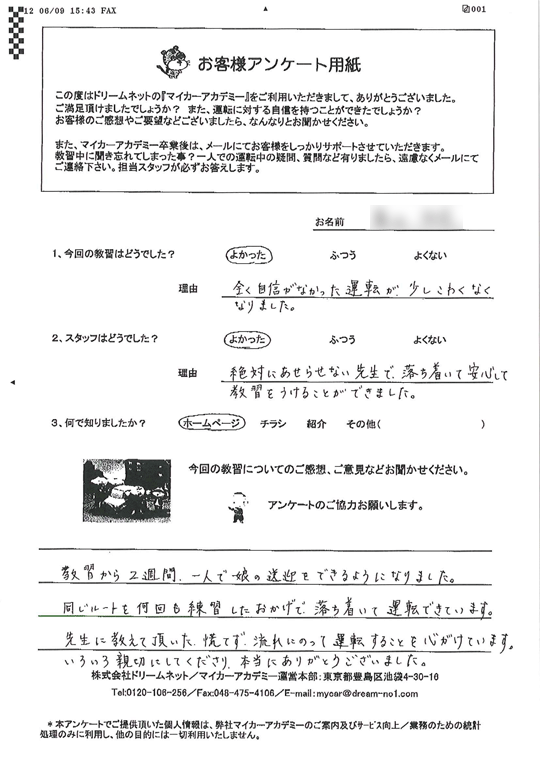 12 06/09 15:43 FAX
001
お客様アンケート用紙
この度はドリームネットの『マイカーアカデミー』をご利用いただきまして、ありがとうございました。
ご満足頂けましたでしょうか？ また、運転に対する自信を持つことができたでしょうか？
お客様のご感想やご要望などございましたら、なんなりとお聞かせください。
また、マイカーアカデミー卒業後は、メールにてお客様をしっかりサポートさせていただきます。
教習中に聞き忘れてしまった事？一人での運転中の疑問、質問など有りましたら、遠慮なくメールにて
ご連絡下さい。担当スタッフが必ずお答えします。
お名前
1、今回の教習はどうでした？ よかった ふつう よくない
理由 全く自信がなかった運転が、少しこわくなく
なりました。
2、スタッフはどうでした？ よかった ふつう よくない
理由 絶対にあせらせない先生で、落ち着いて安心して
教習をうけることができました。
3、何で知りましたか？ ホームページ チラシ 紹介 その他( )
今回の教習についてのご感想、ご意見などお聞かせください。
アンケートのご協力お願いします。
教習から2週間、一人で娘の送迎をできるようになりました。
同じルートを何回も練習したおかげで、落ち着いて運転できています。
先生に教えて頂いた、慌てず、流れにのって運転することを心がけています。
いろいろ親切にしてくださり、本当にありがとうございました。
株式会社ドリームネット／マイカーアカデミー運営本部：東京都豊島区池袋4-30-16
Tel:0120-106-256／Fax:048-475-4106／E-mail:mycar@dream-no1.com
＊本アンケートでご提供頂いた個人情報は、弊社マイカーアカデミーのご案内及びサービス向上／業務のための統計
処理のみに利用し、他の目的には一切利用いたしません。